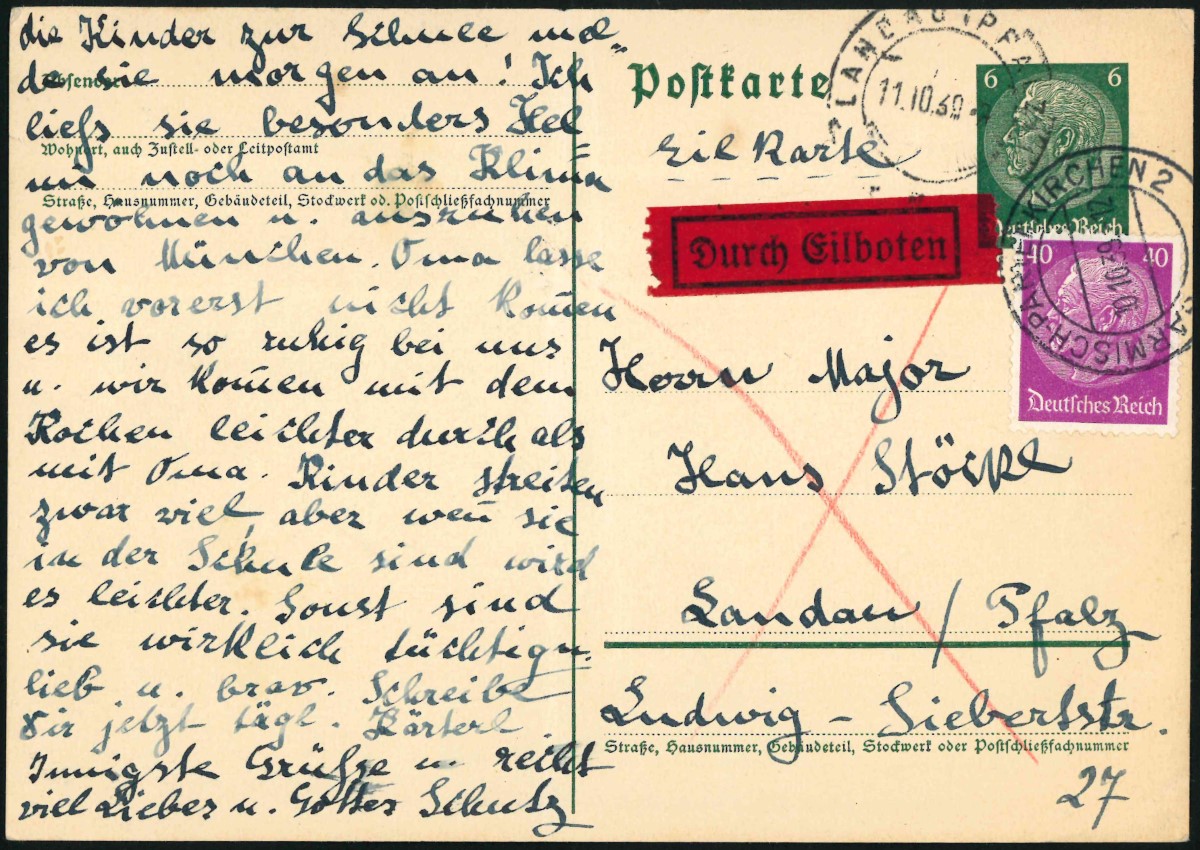 die Kinder zur Schule mel„
de sie morgen an! Ich
Absender:
ließ sie besonders Hel
Wohnort, auch Zustell- oder Leitpostamt
mi noch an das Klima
Straße, Hausnummer, Gebäudeteil, Stockwerk od. Postschließfachnummer
gewöhnen u. ausruhen
von München. Oma lasse
ich vorerst nicht kom̄en
es ist so ruhig bei uns
u. wir kom̄en mit dem
Kochen leichter durch als
mit Oma. Kinder streiten
zwar viel, aber wen̄ sie
in der Schule sind wird
es leichter. Sonst sind
sie wirklich tüchtig
lieb u. brav. Schreibe
Dir jetzt tägl. Kärterl
Innigste Grüße u. recht
viel Liebes u. Gottes Schutz
Postkarte
Eil Karte
Durch Eilboten
LANDAU (PFALZ)
11.10.39
6 6
Deutsches Reich
GARMISCH-PARTENKIRCHEN 2
10.10.39
40 40
Deutsches Reich
Herrn Major
Hans Stöckl
Landau / Pfalz
Ludwig - Siebertstr.
Straße, Hausnummer, Gebäudeteil, Stockwerk oder Postschließfachnummer
27